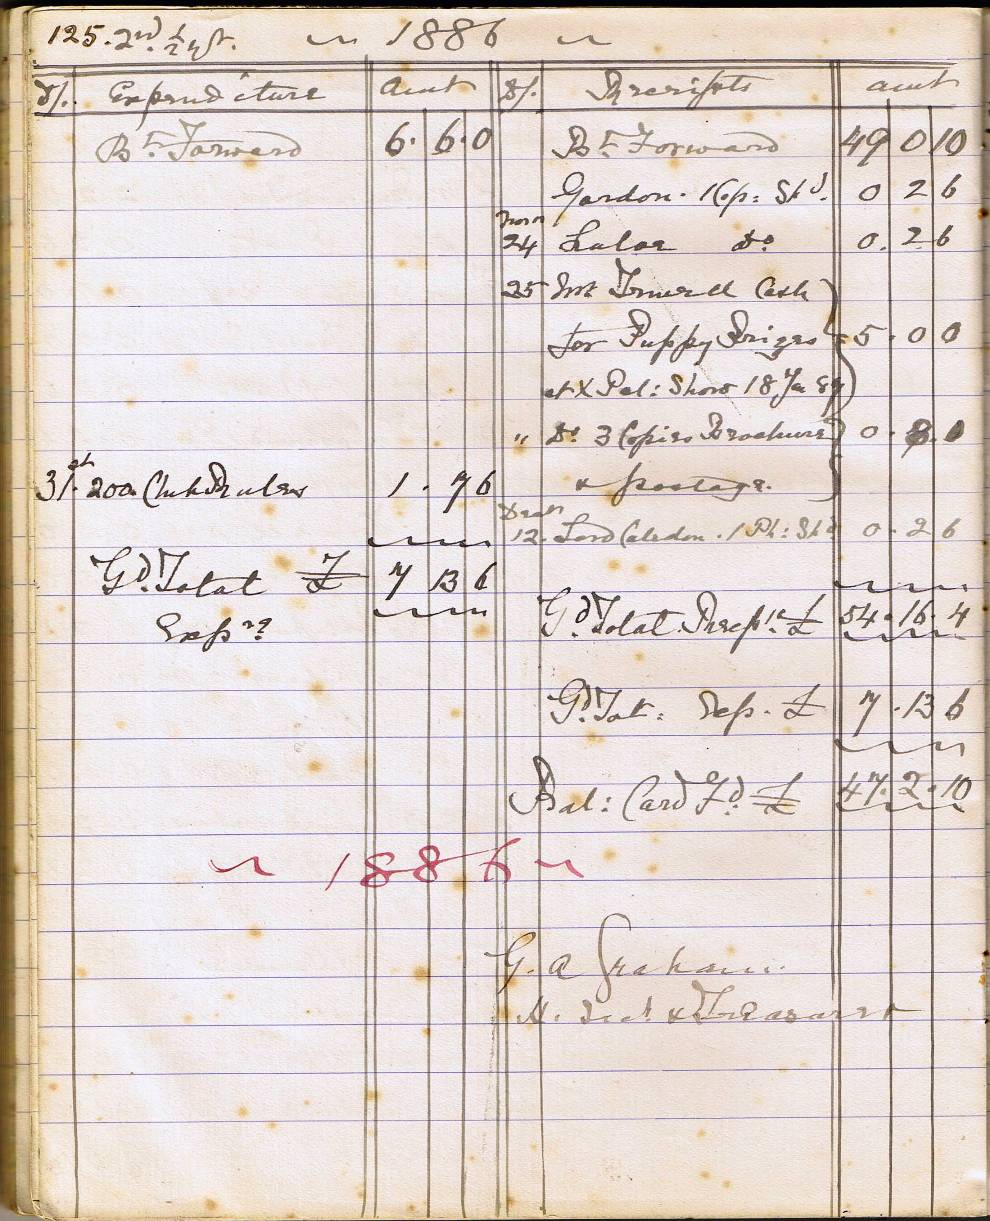 125. 2nd ½ yr. ~ 1886 ~
D/. Expenditure amt D/. Receipts amt
Bt. Forward 6. 6. 0
Bt. Forward 49 0 10
Gordon. 1 Cp: Shd. 0 2 6
Novr
24 Do. 0. 2. 6
25 Mr Cash
for Puppy Prizes 5. 0 0
at X Pal: Show 18 Ja 87
" Do. 3 Copies Brochure 0. 8. 0
& postage.
31st. 200 Club Rules 1. 7 6
Decr
12. Lord Caledon. 1 Ph: Shd 0. 2 6
Gd. Total £ 7 13 6
Expre
Gd. Total Recpts £ 54. 16. 4
Gd. Tot: Exp. £ 7. 13 6
Bal: Card Fd. £ 47. 2. 10
~ 1886 ~
G. A Graham.
H. Sec. & Treasurer